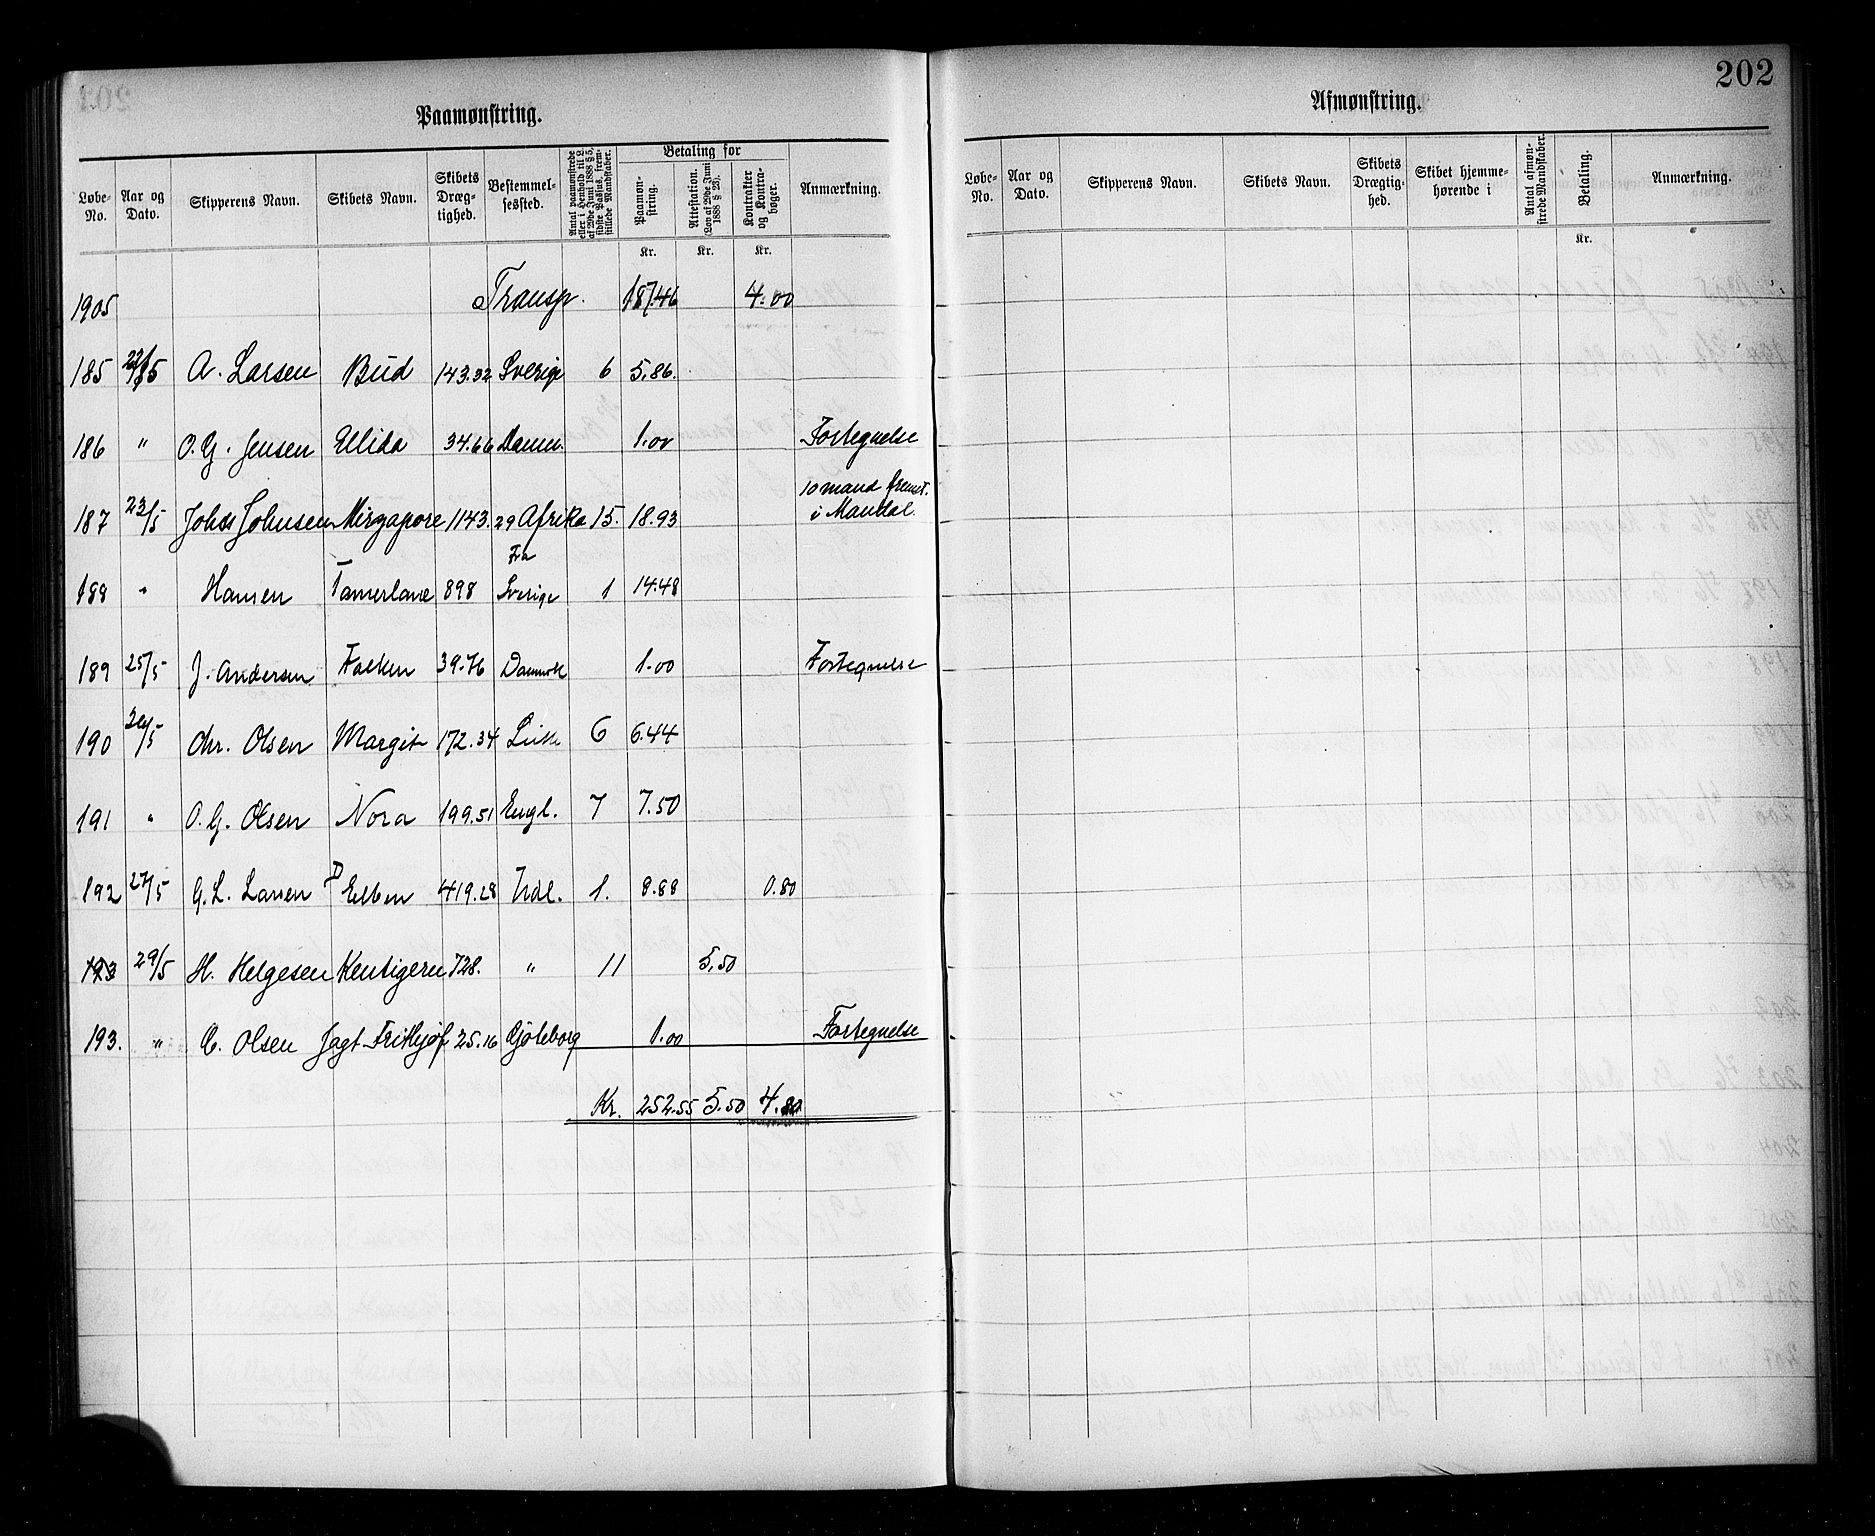 Paamønstring.
Løbe-No. Aar og Dato. Skipperens Navn. Skibets Navn. Skibets Dræg-tighed. Bestemmel-sessted. Antal paamønstrede eller i Henhold til L. af 29de Juni 1888 § 5, sidste Passus, frem-stillede Mandskaber. Betaling for Paamøn-string. Attestation. (Lov af 29de Juni 1888 § 23). Kontrakter og Kontra-bøger. Anmærkning.
Kr. Kr. Kr.
1905 Transp. 187.46 4.00
185 22/5 A. Larsen Bud 143.32 Sverige 6 5.86.
186 " O. G. Jensen Ellida 34.66 Danm. 1.00 Fortegnelse
187 23/5 Johs Johnsen Mirzapore 1143.29 Afrika 15. 18.93 10 mand fremst. i Mandal.
188 " Hansen Tamerlane 898 Fra Sverige 1 14.48
189 25/5 J. Andersen Falken 39.76 Danmrk 1.00 Fortegnelse
190 26/5 Chr. Olsen Margit 172.34 6 6.44
191 " O. G. Olsen Nora 199.51 Engl. 7 7.50
192 27/5 G. L. Larsen D Elben 419.28 Udl. 1. 8.88 0.80
193 29/5 H. Helgesen Kentigern 728. " 11 5.50
193. " C. Olsen Jagt Frithjof 25.16 Gjøteborg 1.00 Fortegnelse
Kr. 252.55 5.50 4.80
202
Afmønstring.
Løbe-No. Aar og Dato. Skipperens Navn. Skibets Navn. Skibets Drægtig-hed. Skibet hjemme-hørende i Antal afmøn-strede Mandskaber. Betaling. Anmærkning.
Kr.